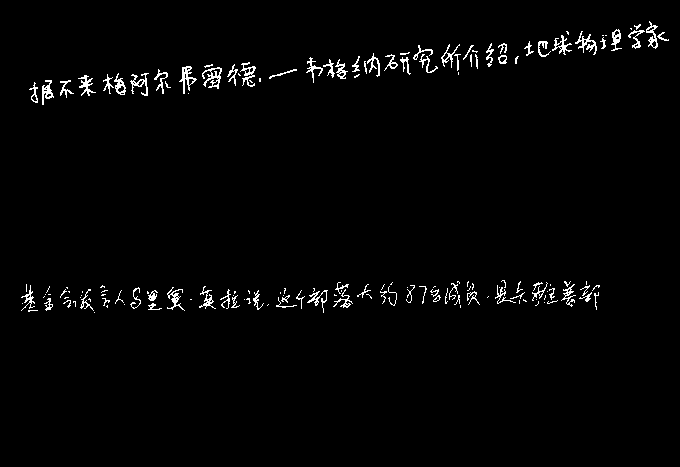 据不来梅阿尔弗雷德.一韦格纳研究所介绍,地球物理学家
基金会发言人马里奥·莫拉说,这个部落大约87名成员,是卡雅普部